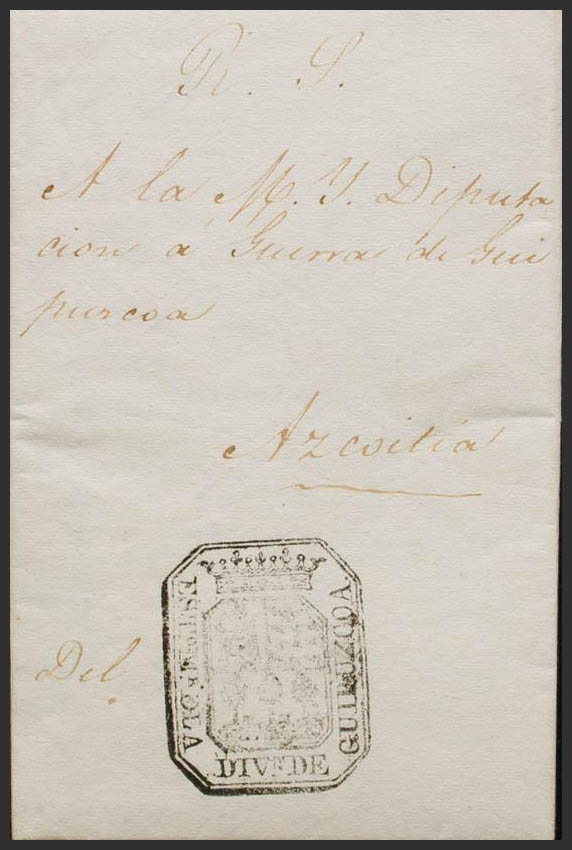 R. S.
A la M. Y. Diputa
cion á Guerra de Gui
puzcoa
Azcoitia
Del
DIVN DE
GUIPUZCOA